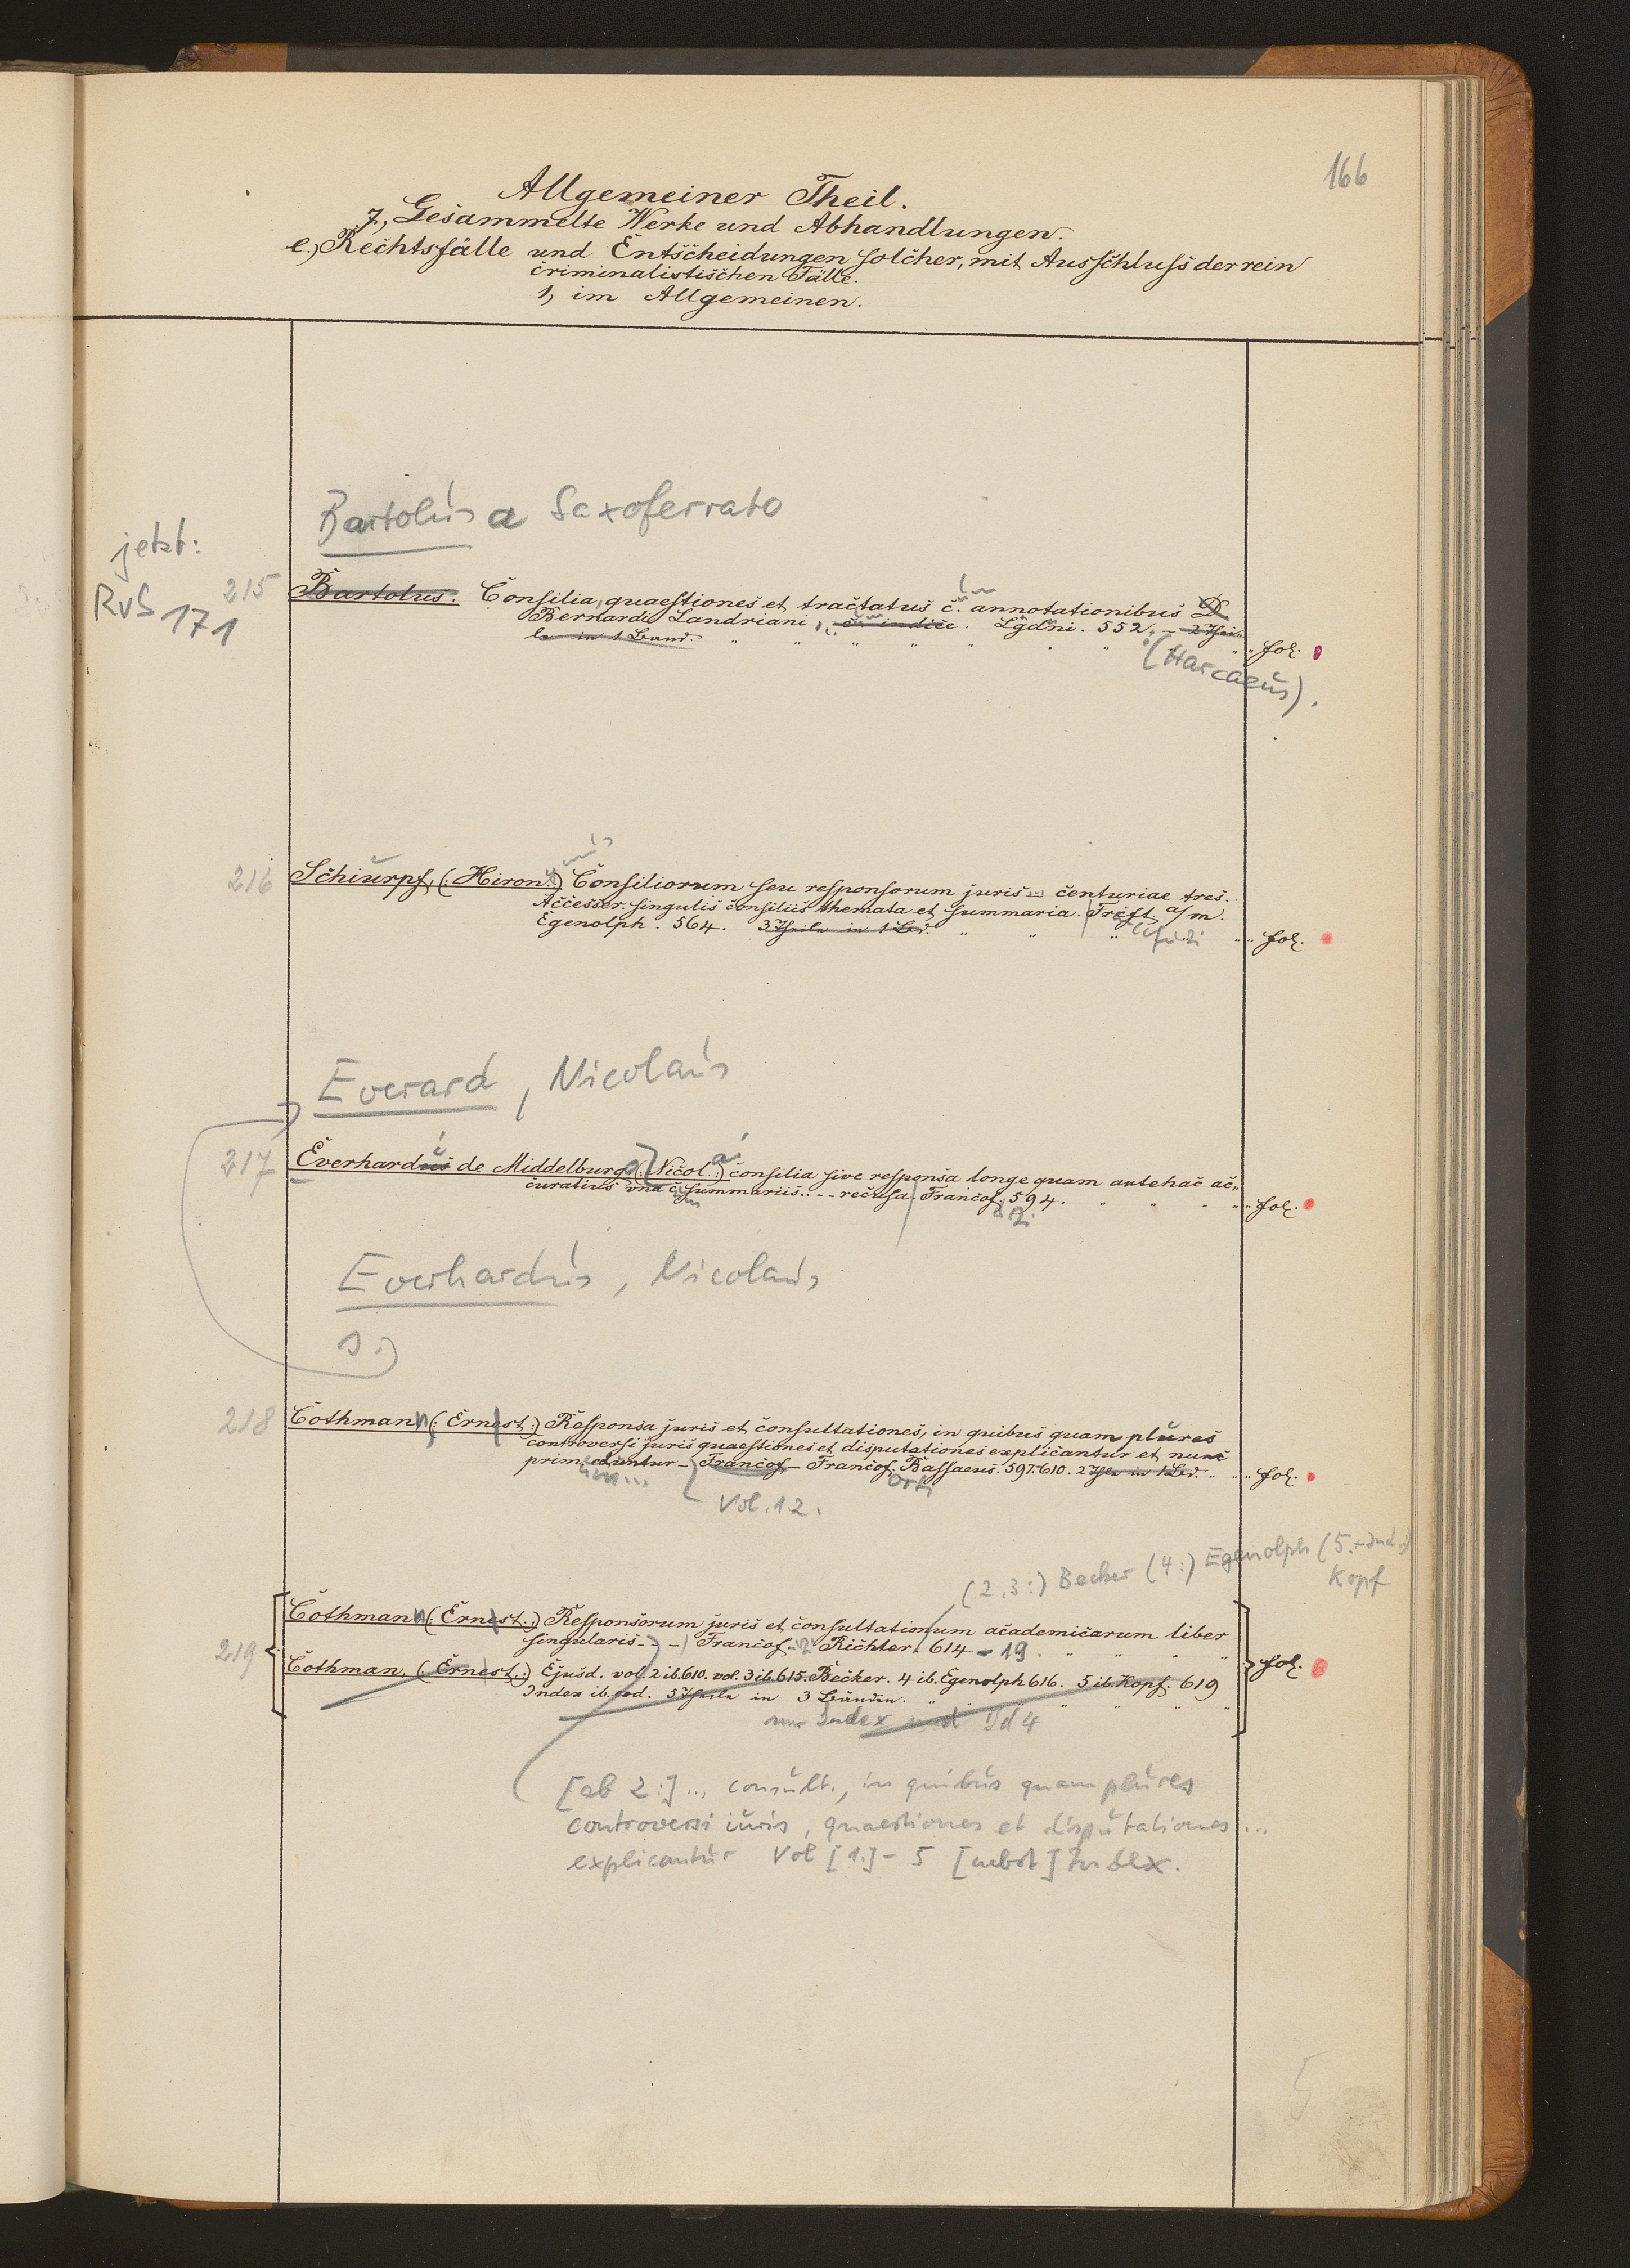 166
Allgemeiner Theil.
7, Gesammelte Werke und Abhandlungen.
e.) Rechtsfälle und Entscheidungen solcher, mit Ausschluss der rein
criminalistischen Fälle.
1, im Allgemeinen.
Bartolus a Saxoferrato
jetzt:
RvS 171
215 Bartolus. Consilia, quaestiones et tractatus c. annotationibus D.
Bernardi Landriani, c. indice. Lgdni. 552. - 2 Thei-
le in 1 Band. fol.
(Harcaeus).
216 Schiurpf, (: Hiron :) Consiliorum seu responsorum juris centuriae tres.
Accesser. singulis consiliis themata et summaria. Frcft. a/m.
Egenolph. 564. 3 Theile in 1 Bd. fol.
Everard, Nicolaus
217 Everhardus de Middelburg (: Nicol :) consilia sive responsa longe quam antehac ac-
curatius vna c. summariis. - - recusa. Francof. 594. fol.
Everhardus, Nicolaus
s.
218 Cothmann (: Ernest :) Responsa juris et consultationes, in quibus quam plures
controversi juris quaestiones et disputationes explicantur et nunc
prim. eduntur - Francof - Francof. Bassaeus. 597. 610. 2 Thle in 1 Bd. fol.
Vol. 1.2.
(2, 3:) Becker (4:) Egenolph (5. + Ind.:)
Kopf
219 Cothmann (: Ernest :) Responsorum juris et consultationum academicarum liber
singularis - - Francof. Richter. 614 - 19.
Cothman, (: Ernest :) Ejusd. vol. 2 ib. 610. vol. 3 ib. 615. Becker. 4 ib. Egenolph 616. 5 ib. Kopf. 619
Index ib. eod. 5 Theile in 3 Bänden. fol.
nur Index und Bd 4
[ab 2:] ... consult., in quibus quam plures
controversi iuris, quaestiones et disputationes ...
explicantur Vol [1.] - 5 [nebst] Index.